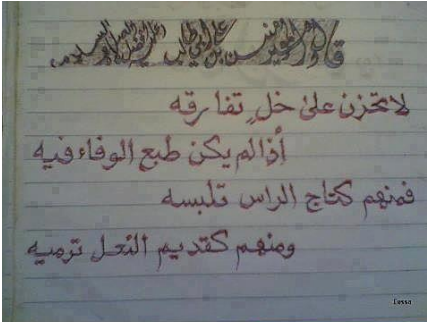 قال أمير المؤمنين علي بن أبي طالب عليه أفضل الصلاة والسلام
لا تحزن على خلٍ تفارقه
أذا لم يكن طبع الوفاء فيه
فمنهم كتاج الراس تلبسه
ومنهم كقديم النعل ترميه